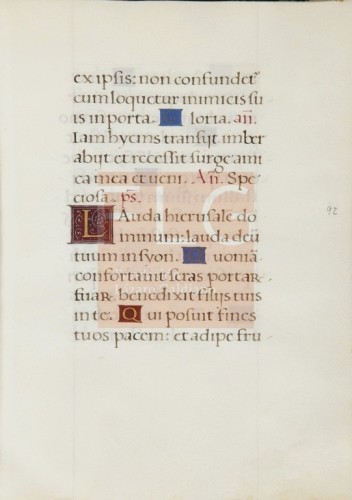 ex ipsis: non confundet᷑
cum loquetur inimicis su
is in porta. Gloria. añ.
Iam hyems transijt imber
abijt et recessit surge ami
ca mea et ueni. Añ. Spe
ciosa. ps̄.
LAuda hierusalē do
minum: lauda deū
tuum in syon. Quoniā
confortauit seras portaꝝ
tuaꝝ benedixit filijs tuis
in te. Qui posuit fines
tuos pacem: et adipe fru
92